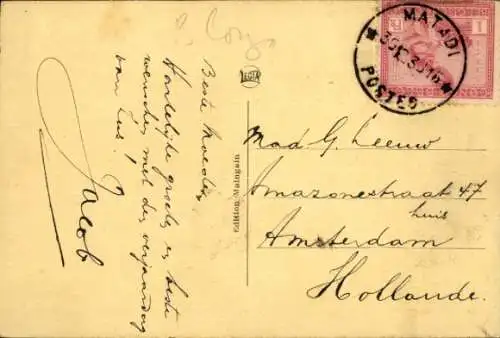 P. Congo
Beste Moeder,
Hartelijke groeten en beste
wenschen met de verjaardag
van Zus!
Jacob
LEGIA
Edition Maingain
MATADI
POSTES
1
Mad G. Leeuw
Amazonestraat 47
huis
Amsterdam
Hollande.